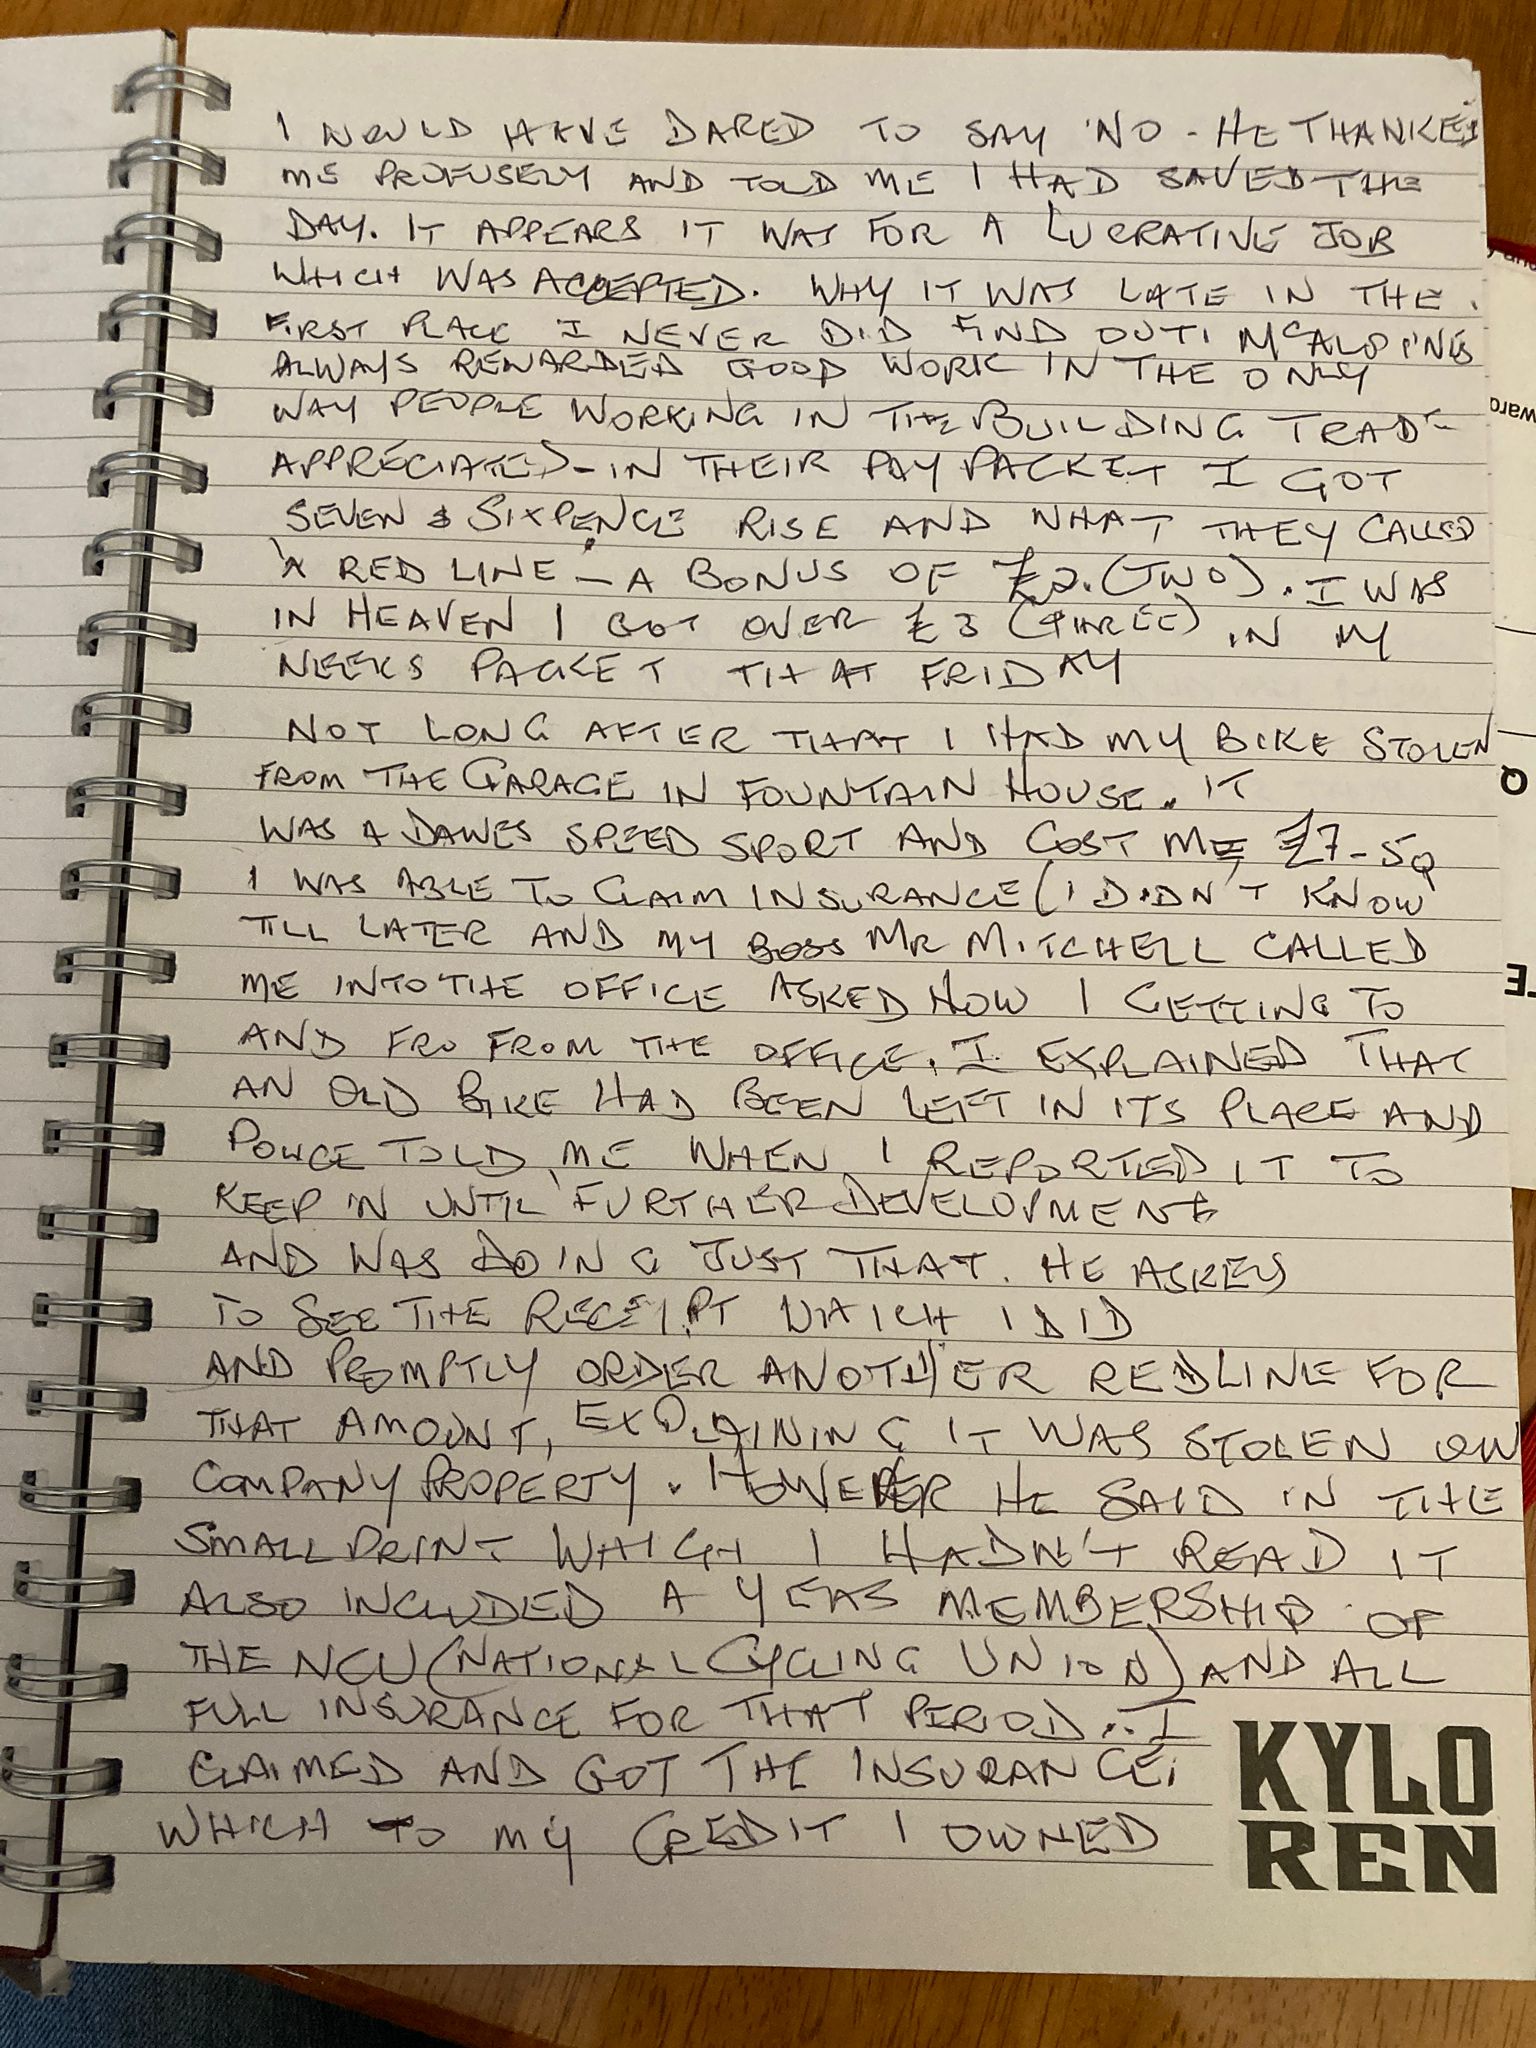 I WOULD HAVE DARED TO SAY 'NO - HE THANKED
ME PROFUSELY AND TOLD ME I HAD SAVED THE
DAY. IT APPEARS IT WAS FOR A LUCRATIVE JOB
WHICH WAS ACCEPTED. WHY IT WAS LATE IN THE
FIRST PLACE I NEVER DID FIND OUT! McALPINES
ALWAYS REWARDED GOOD WORK IN THE ONLY
WAY PEOPLE WORKING IN THE BUILDING TRADE
APPRECIATED - IN THEIR PAY PACKET I GOT
SEVEN & SIXPENCE RISE AND WHAT THEY CALLED
'A RED LINE' - A BONUS OF £2. (TWO). I WAS
IN HEAVEN I GOT OVER £3 (THREE) IN MY
WEEKS PACKET THAT FRIDAY
NOT LONG AFTER THAT I HAD MY BIKE STOLEN
FROM THE GARAGE IN FOUNTAIN HOUSE. IT
WAS A DAWES SPEED SPORT AND COST ME £7-50
I WAS ABLE TO CLAIM INSURANCE (I DIDN'T KNOW
TILL LATER AND MY BOSS MR MITCHELL CALLED
ME INTO THE OFFICE ASKED HOW I GETTING TO
AND FRO FROM THE OFFICE. I EXPLAINED THAT
AN OLD BIKE HAD BEEN LEFT IN ITS PLACE AND
POLICE TOLD ME WHEN I REPORTED IT TO
KEEP IN UNTIL FURTHER DEVELOPMENTS
AND WAS DOING JUST THAT. HE ASKED
TO SEE THE RECEIPT WHICH I DID
AND PROMPTLY ORDER ANOTHER REDLINE FOR
THAT AMOUNT, EXPLAINING IT WAS STOLEN ON
COMPANY PROPERTY. HOWEVER HE SAID IN THE
SMALL PRINT WHICH I HADN'T READ IT
ALSO INCLUDED A YEARS MEMBERSHIP OF
THE NCU (NATIONAL CYCLING UNION) AND ALL
FULL INSURANCE FOR THAT PERIOD.. I
CLAIMED AND GOT THE INSURANCE;
WHICH TO MY CREDIT I OWNED
KYLO
REN